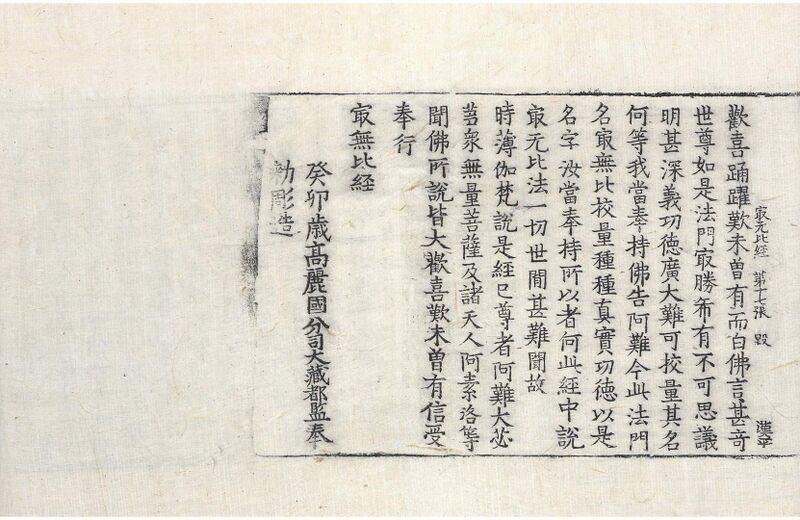 冣无比經 第十七張 毀
歡喜踊躍歎未曽有而白佛言甚奇
世尊如是法門冣勝希有不可思議
明甚深義功德廣大難可挍量其名
何等我當奉持佛告阿難今此法門
名冣無比挍量種種真實功德以是
名字汝當奉持所以者何此經中說
冣无比法一切世閒甚難聞故
時薄伽梵說是經已尊者阿難大苾
芻衆無量菩薩及諸天人阿素洛等
聞佛所說皆大歡喜歎未曽有信受
奉行
冣無比經
癸卯歳高麗國分司大藏都監奉
勑彫造